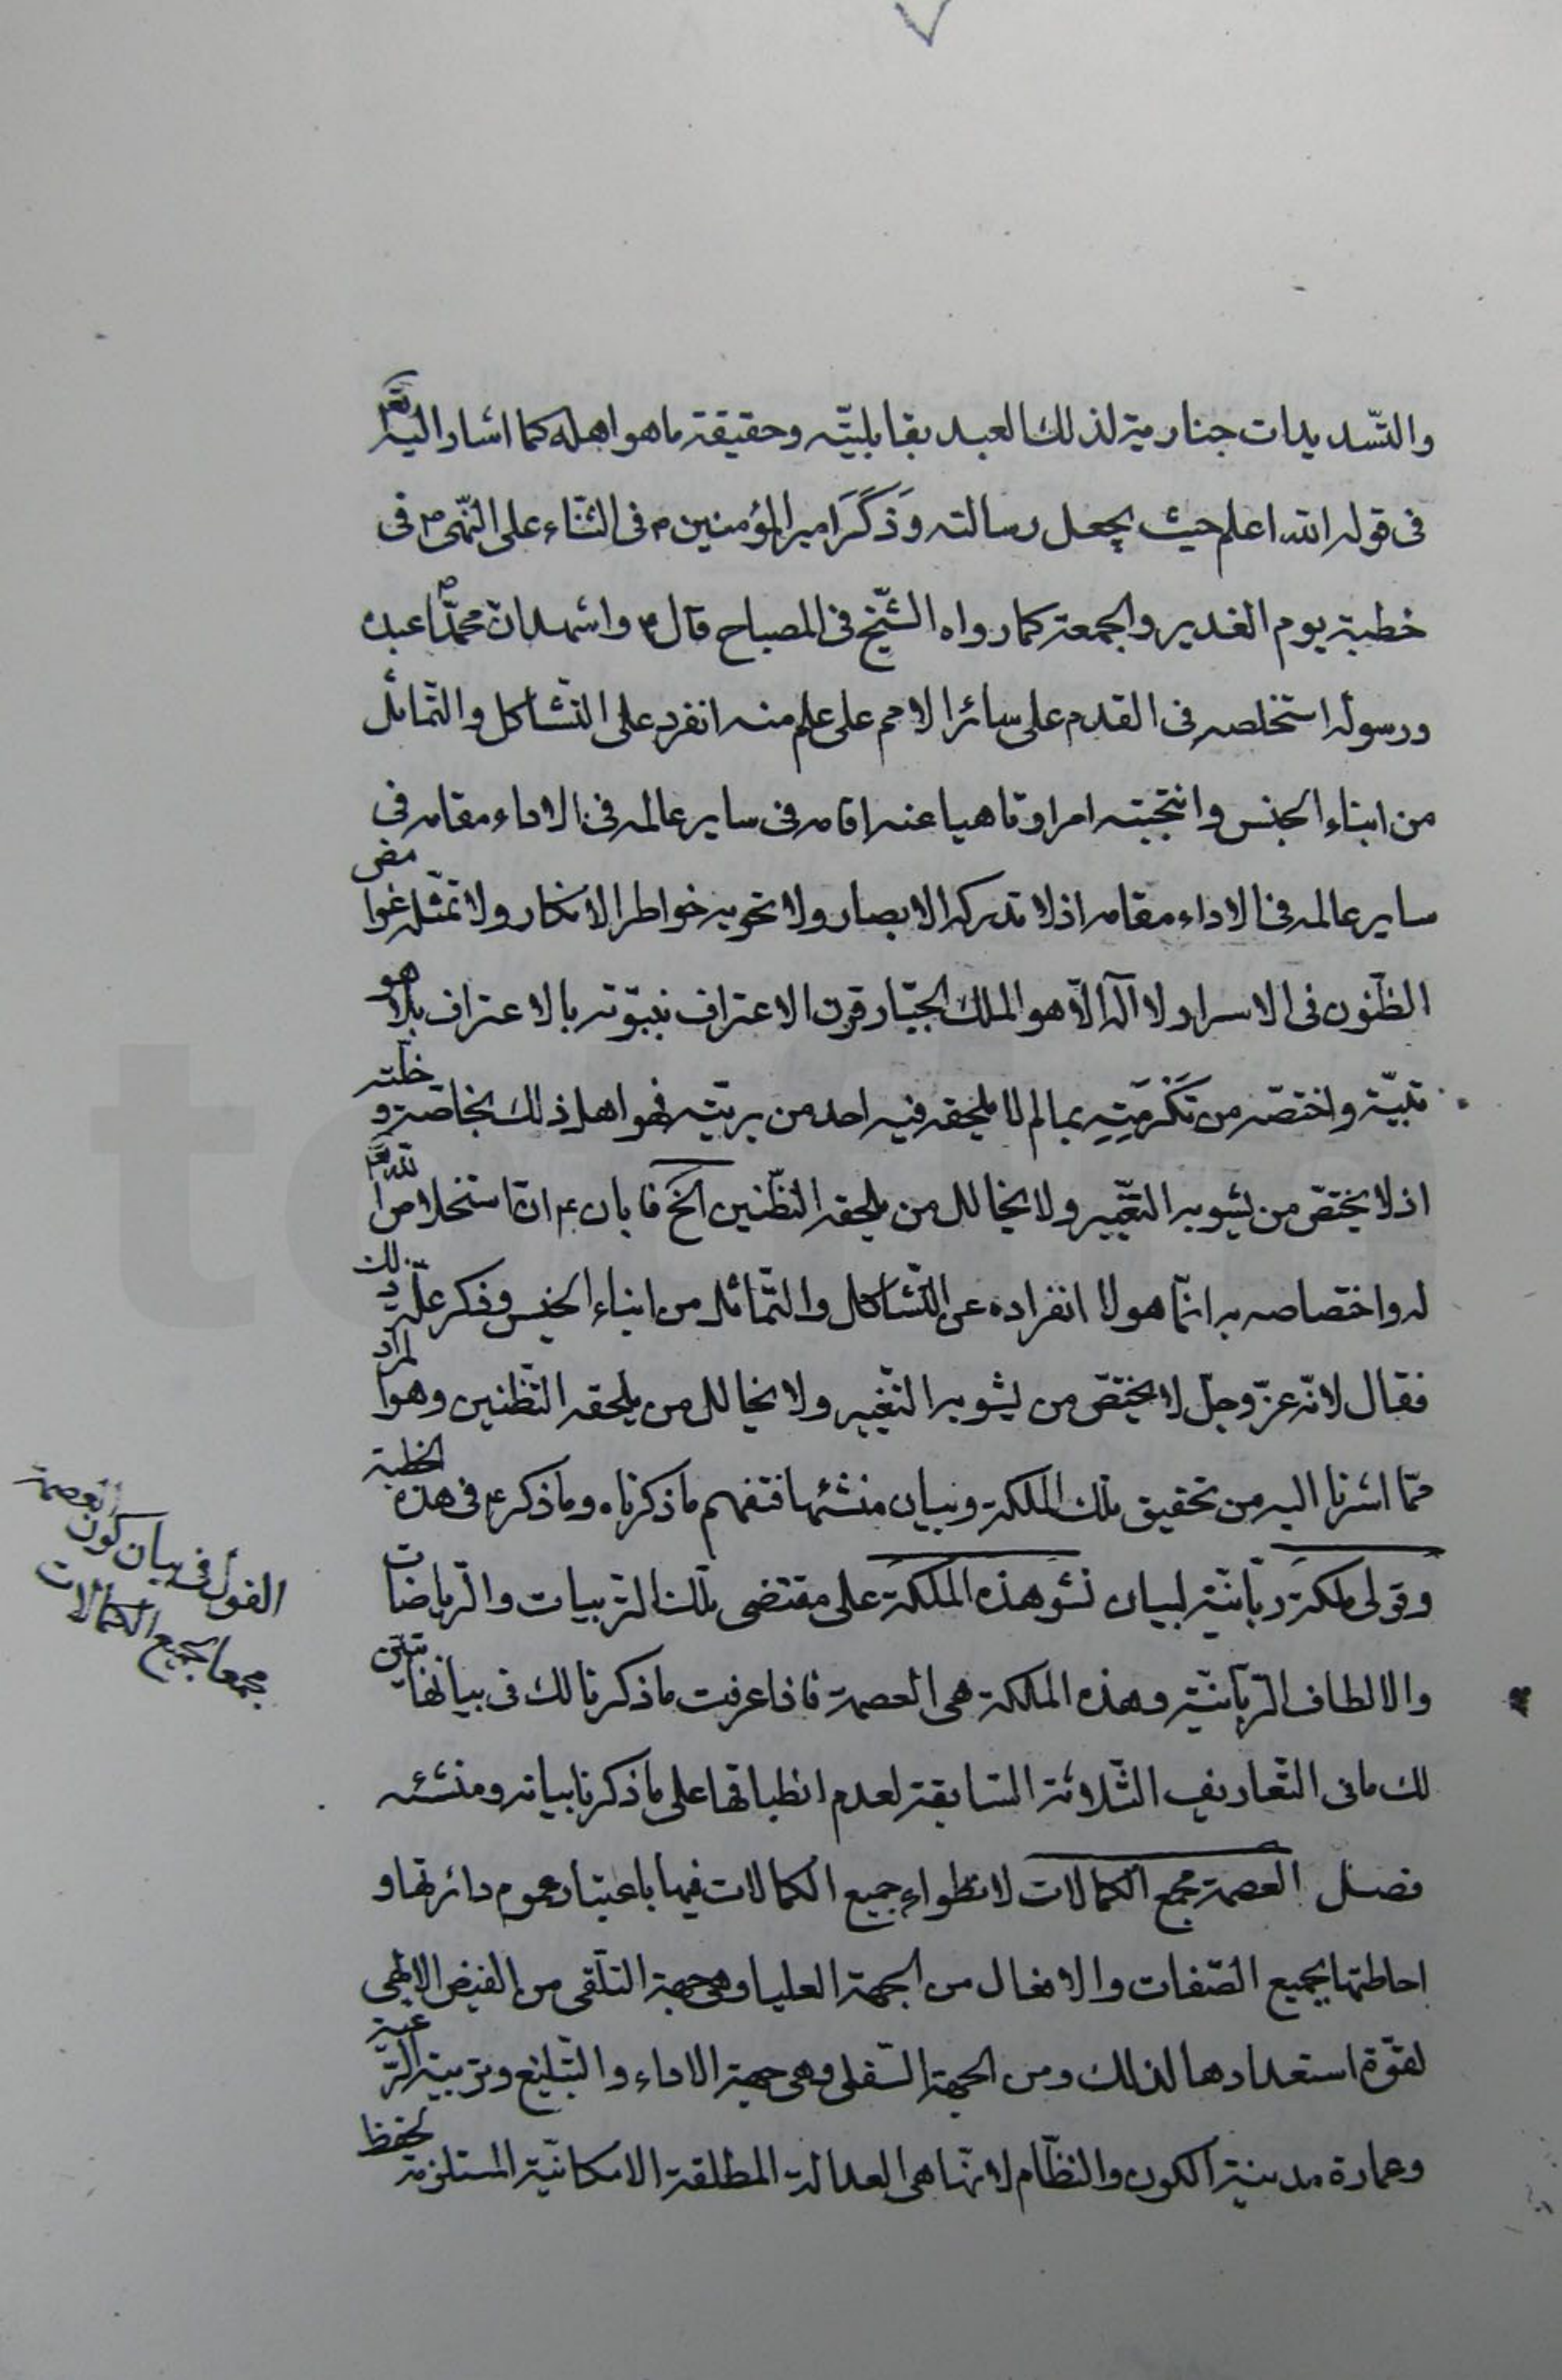 والتسديدات جنارمية لذلك العبد بقابليّته وحقيقة ما هو اهله كما اشار اليه تعٰ
فى قوله الله اعلم حيث يجعل رسالته وَذَكَرَ امير المؤمنين ۴ فى الثناء على النّبى ص فى
خطبة يوم الغدير والجمعة كما رواه الشّيخ فى المصباح قال ۴ واشهد انّ محمّداً ص عبده
ورسوله استخلصه فى القدم على سائر الامم على علم منه انفرد على التّشاكل والتّماثل
من ابناء الجنس وانتجبته امرا وناهيا عنه اقامه فى ساير عالمه فى الاداء مقامه فى
ساير عالمه فى الاداء مقامه اذ لا تدركه الابصار ولا تحويه خواطر الافكار ولا تمثّله غوامض
الظّنون فى الاسرار لا اله الّا هو الملك الجبّار قرن الاعتراف بنبوّته بالاعتراف بلاهو
تيّته واختصّه من تَكْرِمَتِهِ بما لم يلحقه فيه احد من بريّته فهو اهل ذلك بخاصّته وخلّته
اذ لا يختصّ من يشوبه التّغيير ولا يخالل من يلحقه التّظنين الخ فابان ۴ انّ استخلاص الله تعٰ
له واختصاصه به انّما هو لا انفراده عن التّشاكل والتّماثل من ابناء الجنس وذكر علّة ذلك
فقال لانّه عزّ وجلّ لا يختصّ من يشوبه التّغيير ولا يخالل من يلحقه التّظنين وهو المراد
ممّا اشرنا اليه من تحقيق تلك الملكة وبيان منشئها فتفهم ما ذكرناه وما ذكره ۴ فى هذه الخطبة
وقولى ملكة ربانيّة لبيان نشو هذه الملكة على مقتضى تلك التربيات والرياضات
والالطاف الرّبانيّة وهذه الملكة هى العصمة فاذا عرفت ما ذكرنا لك فى بيانها تبيّن
لك ما فى التّعاريف الثّلاثة السّابقة لعدم انطباقها على ما ذكرنا بيانه ومنشئه
فصل العصمة مجمع الكمالات لانطواء جميع الكمالات فيها باعتبار عموم دائرتها و
احاطتها بجميع الصّفات والافعال من الجهة العليا وهى جهة التلقّى من الفيض الالهى
لقوّة استعدادها لذلك ومن الجهة السّفلى وهى جهة الاداء والتّبليغ وتربية الرّعية
وعمارة مدينة الكون والنظّام لانّها هى العدالة المطلقة الامكانيّة المستلزمة لحفظ
القول فى بيان كون العصمة
مجمعا لجميع الكمالات